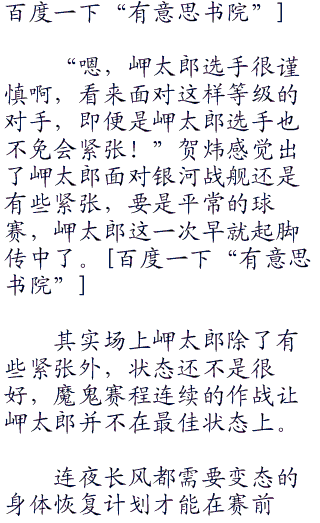 百度一下“有意思书院”]
“嗯，岬太郎选手很谨
慎啊，看来面对这样等级的
对手，即便是岬太郎选手也
不免会紧张！”贺炜感觉出
了岬太郎面对银河战舰还是
有些紧张，要是平常的球
赛，岬太郎这一次早就起脚
传中了。[百度一下“有意思
书院”]
其实场上岬太郎除了有
些紧张外，状态还不是很
好，魔鬼赛程连续的作战让
岬太郎并不在最佳状态上。
连夜长风都需要变态的
身体恢复计划才能在赛前